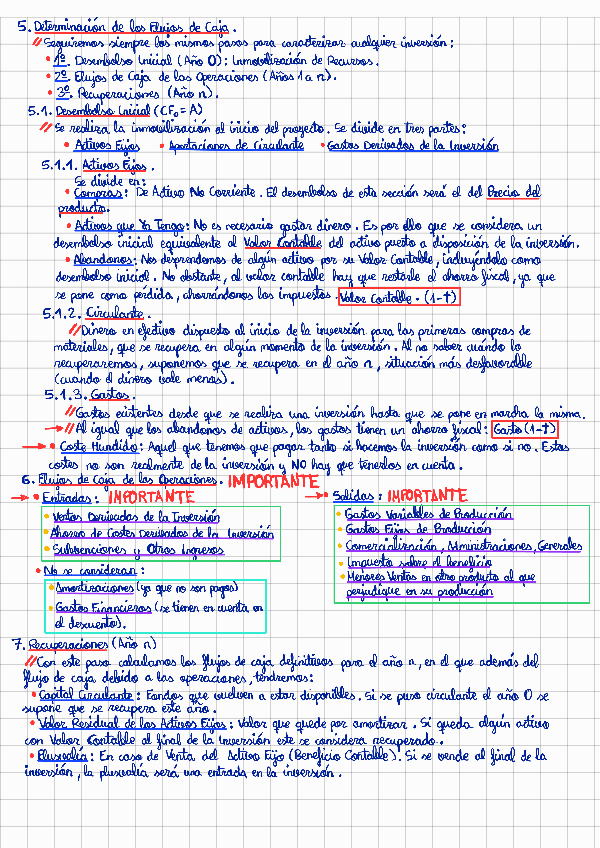 5. Determinación de los Flujos de Caja.
// Seguiremos siempre los mismos pasos para caracterizar cualquier inversión:
• 1º. Desembolso Inicial (Año 0): Inmovilización de Recursos.
• 2º. Flujos de Caja de las Operaciones (Años 1 a n).
• 3º. Recuperaciones (Año n).
5.1. Desembolso Inicial (CF₀ = A)
// Se realiza la inmovilización al inicio del proyecto. Se divide en tres partes:
• Activos Fijos • Aportaciones de Circulante • Gastos Derivados de la Inversión
5.1.1. Activos Fijos.
Se divide en:
• Compras: De Activo No Corriente. El desembolso de esta sección será el del Precio del
producto.
• Activos que Ya Tengo: No es necesario gastar dinero. Es por ello que se considera un
desembolso inicial equivalente al Valor Contable del activo puesto a disposición de la inversión.
• Abandonos: Nos desprendemos de algún activo por su Valor Contable, incluyéndolo como
desembolso inicial. No obstante, al valor contable hay que restarle el ahorro fiscal, ya que
se pone como pérdida, ahorrándonos los impuestos. Valor Contable · (1-T)
5.1.2. Circulante.
// Dinero en efectivo dispuesto al inicio de la inversión para las primeras compras de
materiales, que se recupera en algún momento de la inversión. Al no saber cuándo lo
recuperaremos, suponemos que se recupera en el año n, situación más desfavorable
(cuando el dinero vale menos).
5.1.3. Gastos.
// Gastos existentes desde que se realiza una inversión hasta que se pone en marcha la misma.
→ // Al igual que los abandonos de activos, los gastos tienen un ahorro fiscal: Gasto (1-T)
→ • Coste Hundido: Aquel que tenemos que pagar tanto si hacemos la inversión como si no. Estos
costes no son realmente de la inversión y NO hay que tenerlos en cuenta.
6. Flujos de Caja de las Operaciones. IMPORTANTE
→ • Entradas: IMPORTANTE
• Ventas Derivadas de la Inversión
• Ahorro de Costes Derivados de la Inversión
• Subvenciones y Otros Ingresos
• No se consideran:
• Amortizaciones (ya que no son pagos)
• Gastos Financieros (se tienen en cuenta en
el descuento).
→ • Salidas: IMPORTANTE
• Gastos Variables de Producción
• Gastos Fijos de Producción
• Comercialización, Administraciones, Generales
• Impuesto sobre el beneficio
• Menores Ventas en otro producto al que
perjudique en su producción
7. Recuperaciones (Año n)
// Con este paso calculamos los flujos de caja definitivos para el año n, en el que además del
flujo de caja debido a las operaciones, tendremos:
• Capital Circulante: Fondos que vuelven a estar disponibles. Si se puso circulante el año 0 se
supone que se recupera este año.
• Valor Residual de los Activos Fijos: Valor que quede por amortizar. Si queda algún activo
con Valor Contable al final de la Inversión este se considera recuperado.
• Plusvalía: En caso de Venta del Activo Fijo (Beneficio Contable). Si se vende al final de la
inversión, la plusvalía será una entrada en la inversión.